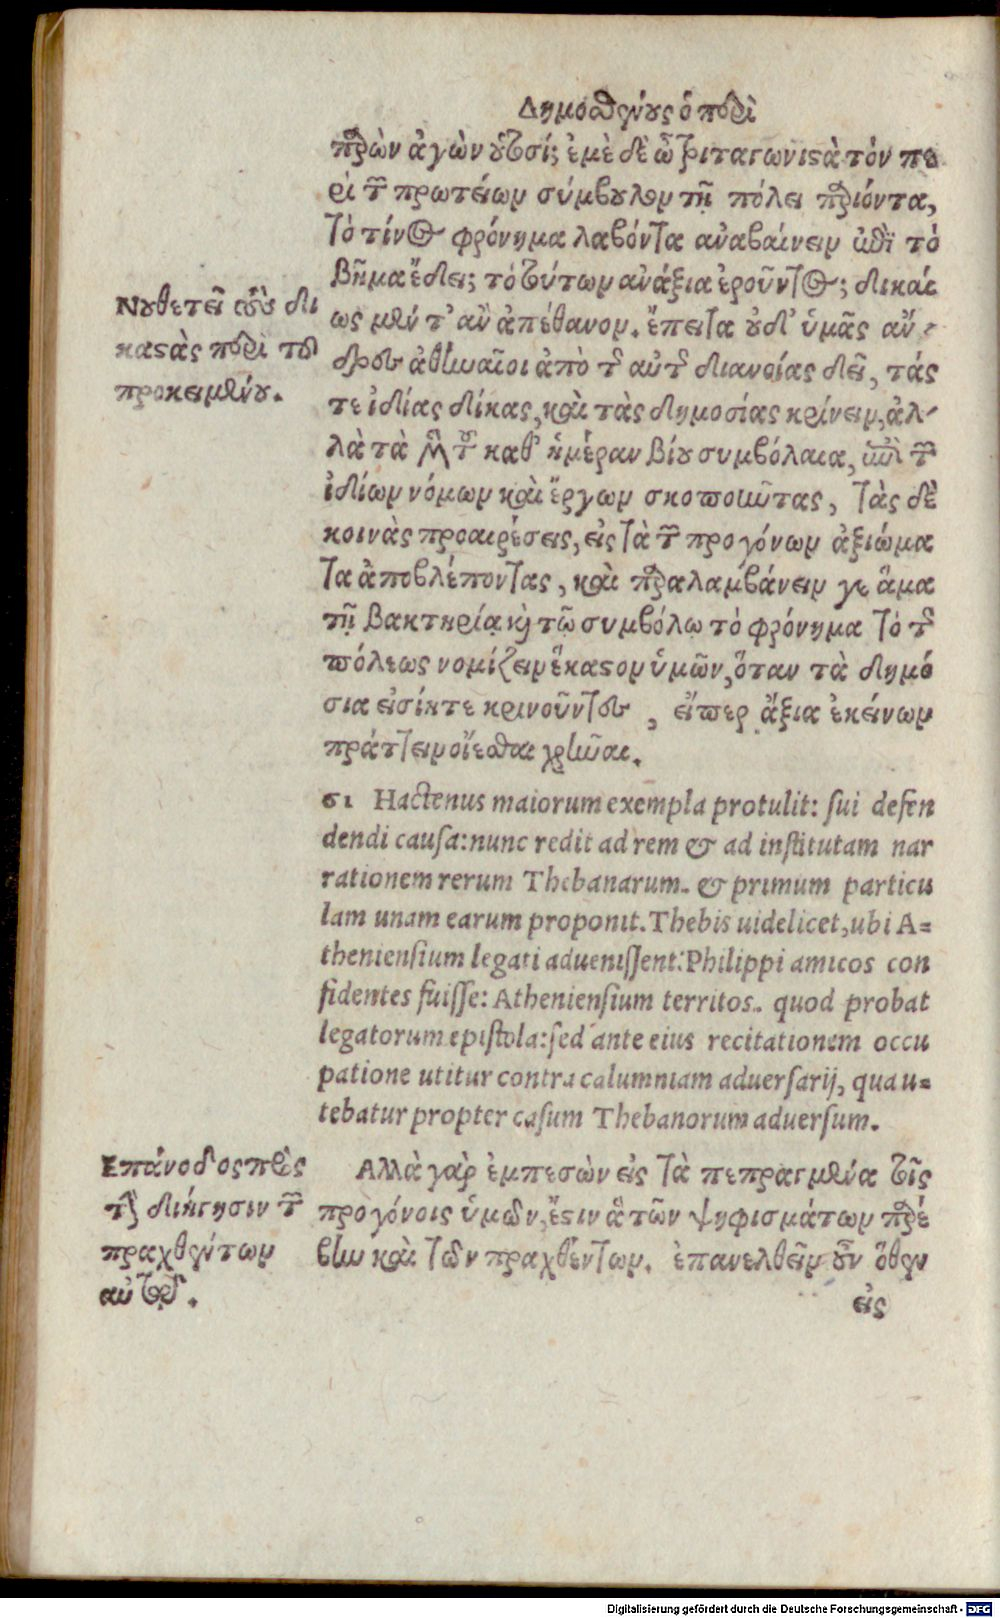 Δημοσθένους ὁ περὶ
παρὼν ἀγὼν οὑτοσί; ἐμὲ δὲ ὦ τριταγωνιστὰ τὸν πε
ρὶ τῶν πρωτείων σύμβουλον τῇ πόλει παριόντα,
τὸ τίνος φρόνημα λαβόντα ἀναβαίνειν ἐπὶ τὸ
βῆμα ἔδει; τὸ τούτων ἀνάξια ἐροῦντος; δικαί
ως μέν τ' ἂν ἀπέθανον. ἔπειτα οὐδ' ὑμᾶς ἄν-
δρες ἀθηναῖοι ἀπὸ τῆς αὐτῆς διανοίας δεῖ, τάς
τε ἰδίας δίκας, καὶ τὰς δημοσίας κρίνειν, ἀλ-
λὰ τὰ μὲν τοῦ καθ' ἡμέραν βίου συμβόλαια, ἐπὶ τῶν
ἰδίων νόμων καὶ ἔργων σκοποῦντας, τὰς δὲ
κοινὰς προαιρέσεις, εἰς τὰ τῶν προγόνων ἀξιώμα
τα ἀποβλέποντας, καὶ παραλαμβάνειν γε ἅμα
τῇ βακτηρίᾳ καὶ τῷ συμβόλῳ τὸ φρόνημα τὸ τῆς
πόλεως νομίζειν ἕκαστον ὑμῶν, ὅταν τὰ δημό
σια εἰσίητε κρινοῦντες, εἴπερ ἄξια ἐκείνων
πράττειν οἴεσθαι χρῆναι.
Νουθετεῖ τοὺς δι
καστὰς περὶ τοῦ
προκειμένου.
61 Hactenus maiorum exempla protulit: sui defen
dendi causa: nunc redit ad rem & ad institutam nar
rationem rerum Thebanarum. & primum particu
lam unam earum proponit. Thebis uidelicet, ubi A=
theniensium legati aduenissent: Philippi amicos con
fidentes fuisse: Atheniensium territos. quod probat
legatorum epistola: sed ante eius recitationem occu
patione utitur contra calumniam aduersarij, qua u=
tebatur propter casum Thebanorum aduersum.
Ἐπάνοδος πρὸς
τὴν διήγησιν τῶν
πραχθέντων
αὐτῷ.
Ἀλλὰ γὰρ ἐμπεσὼν εἰς τὰ πεπραγμένα τοῖς
προγόνοις ὑμῶν, ἔστιν ἃ τῶν ψηφισμάτων παρέ
βην καὶ τῶν πραχθέντων. ἐπανελθεῖν οὖν ὅθεν
εἰς
Digitalisierung gefördert durch die Deutsche Forschungsgemeinschaft - DFG